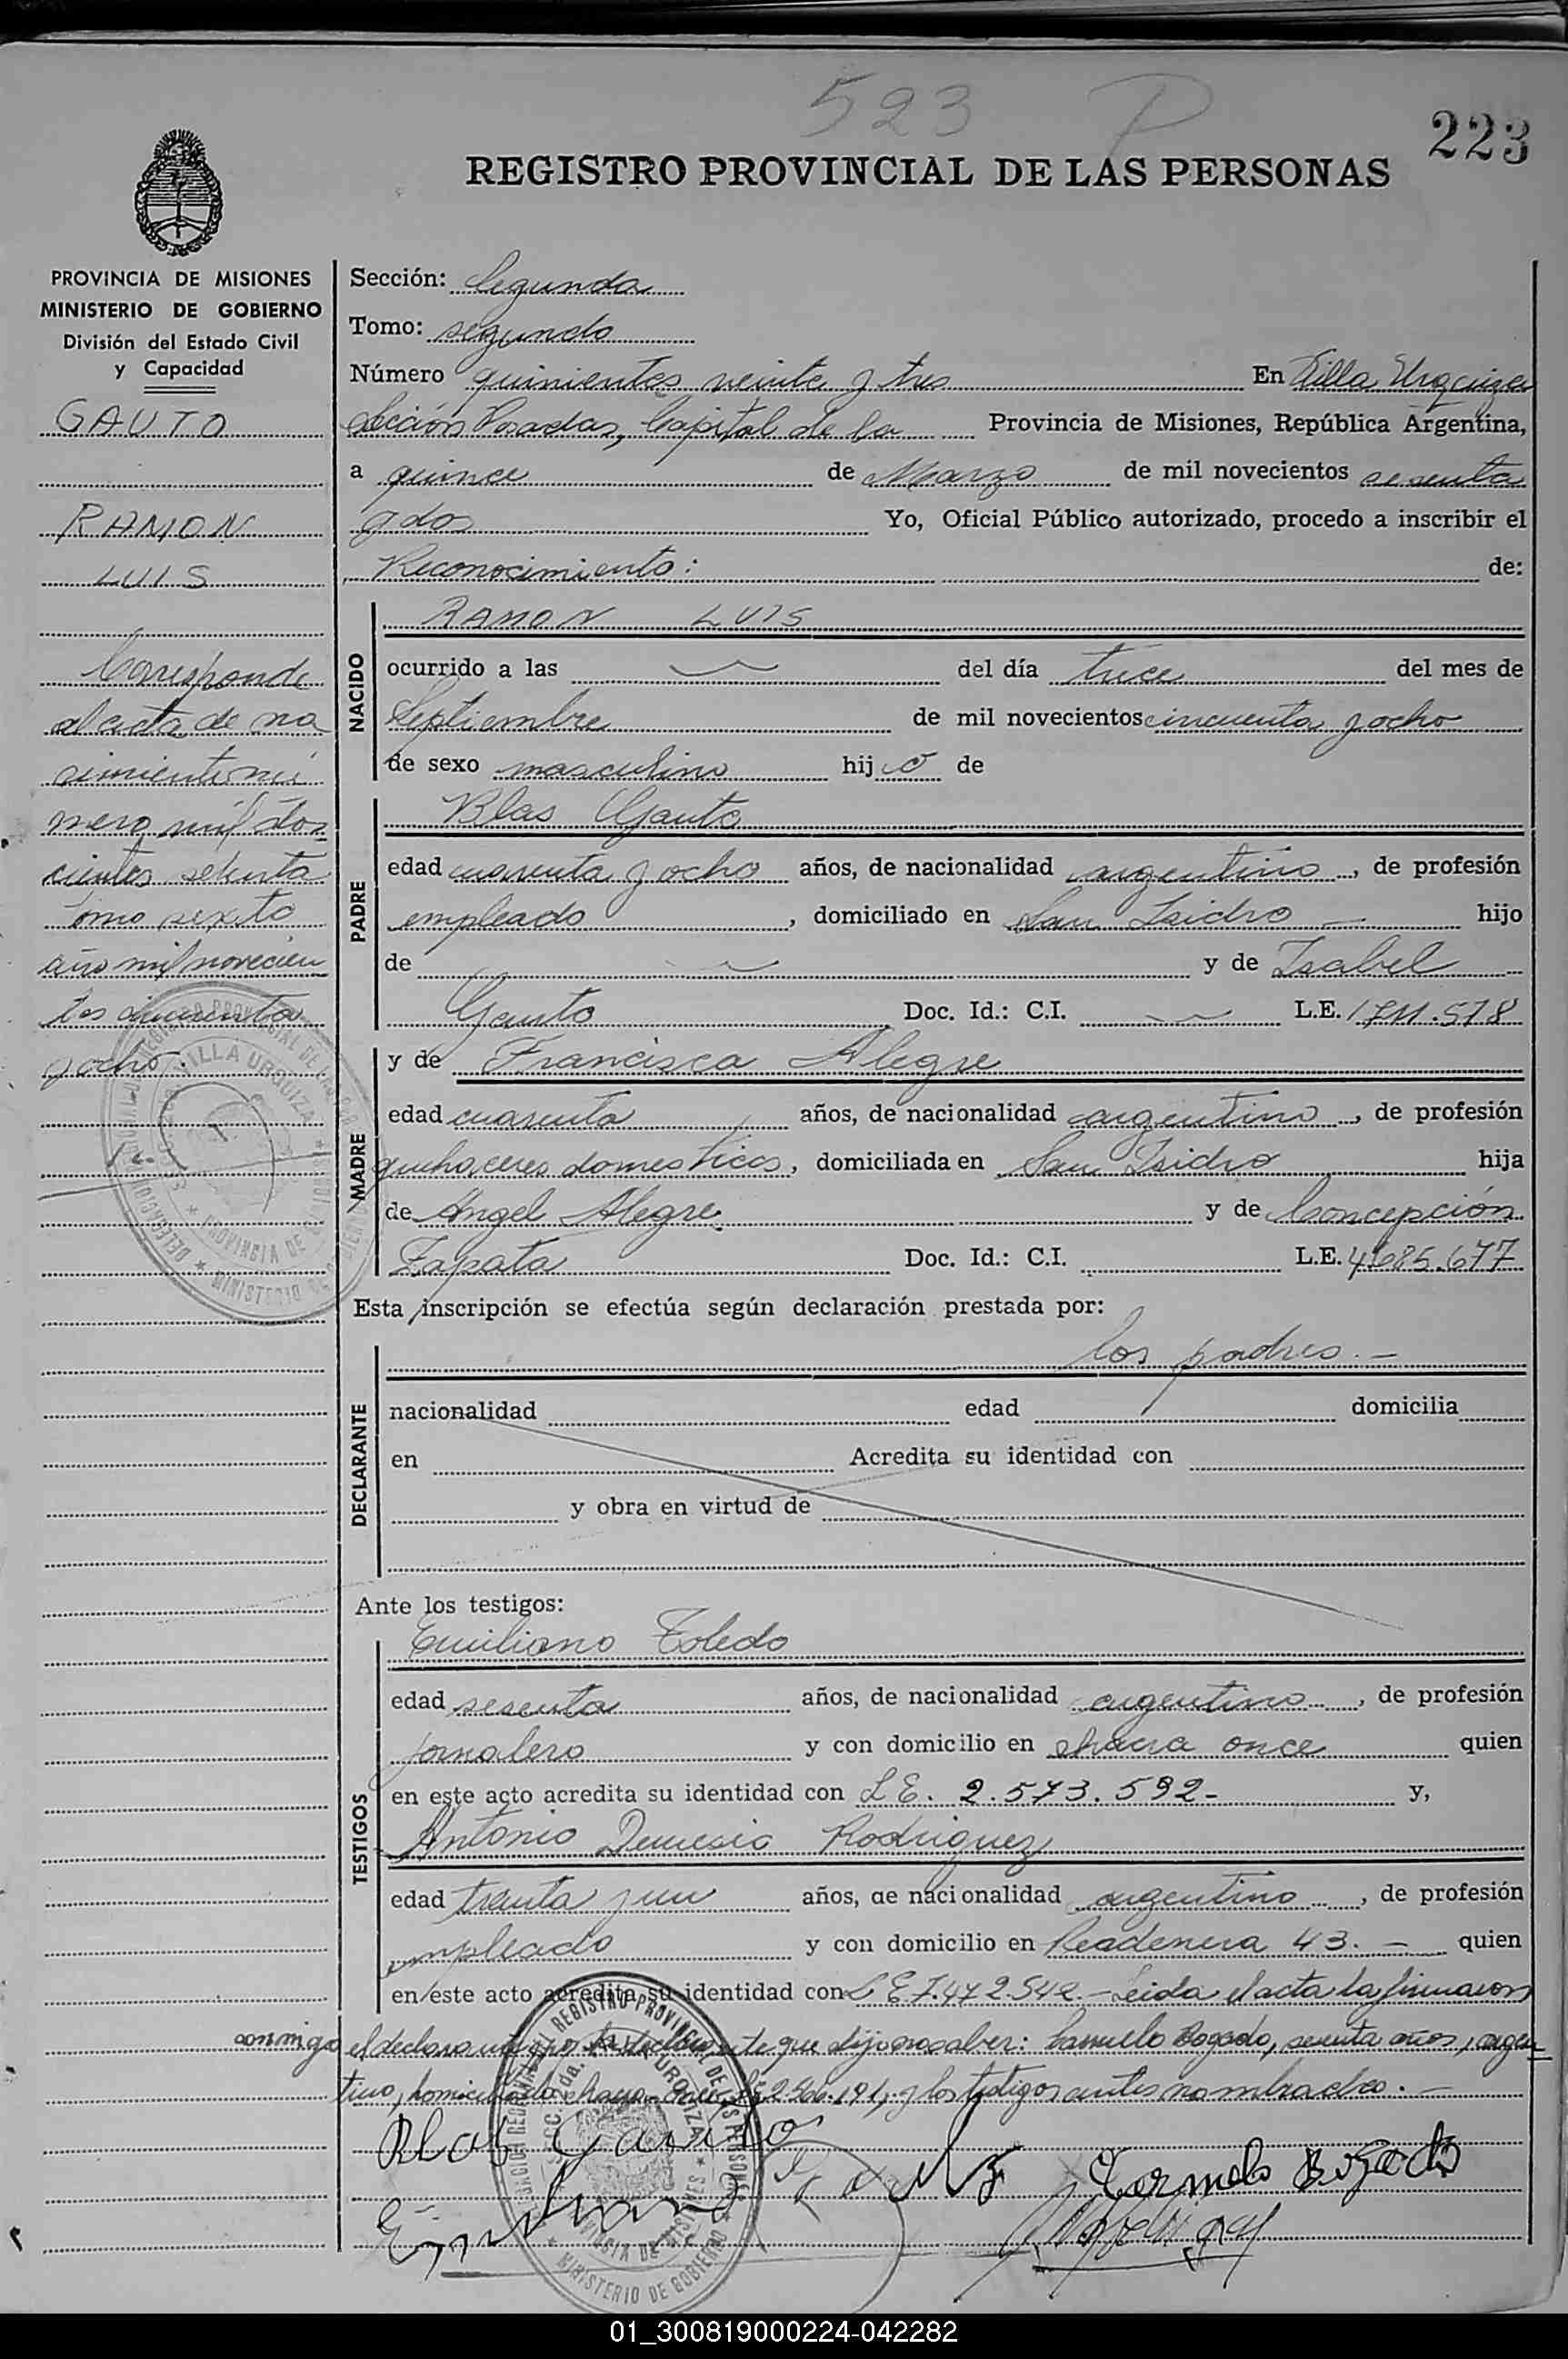 523 P
223
REGISTRO PROVINCIAL DE LAS PERSONAS
PROVINCIA DE MISIONES
MINISTERIO DE GOBIERNO
División del Estado Civil
y Capacidad
GAUTO
RAMON
LUIS
Corresponde
al acta de na
cimiento nú
mero mil dos
cientos setenta
tomo sexto
año mil novecien
tos cincuenta
y ocho.
Sección: Segunda
Tomo: segundo
Número quinientos veinte y tres En Villa Urquiza
sección Posadas, Capital de la Provincia de Misiones, República Argentina,
a quince de Marzo de mil novecientos sesenta
y dos Yo, Oficial Público autorizado, procedo a inscribir el
Reconocimiento: de:
NACIDO
RAMON LUIS
ocurrido a las del día trece del mes de
Septiembre de mil novecientos cincuenta y ocho
de sexo masculino hijo de
PADRE
Blas Gauto
edad cuarenta y ocho años, de nacionalidad argentino, de profesión
empleado, domiciliado en San Isidro — hijo
de y de Isabel
Gauto Doc. Id.: C.I. L.E. 1711.578
MADRE
y de Francisca Alegre
edad cuarenta años, de nacionalidad argentino, de profesión
quehaceres domesticos, domiciliada en San Isidro hija
de Angel Alegre y de Concepción
Zapata Doc. Id.: C.I. L.E. 4.085.677
Esta inscripción se efectúa según declaración prestada por:
DECLARANTE
los padres.—
nacionalidad edad domicilia
en Acredita su identidad con
y obra en virtud de
Ante los testigos:
TESTIGOS
Emiliano Toledo
edad sesenta años, de nacionalidad argentino, de profesión
jornalero y con domicilio en chacra once quien
en este acto acredita su identidad con L E. 2.573.592- y,
Antonio Demesio Rodriguez
edad treinta y un años, de nacionalidad argentino, de profesión
empleado y con domicilio en 43.— quien
en este acto acredita su identidad con L E 7.472.542.— Leida el acta la firmaron
conmigo el declarante que dijo no saber: Carmelo Bogado, sesenta años, argen
tino, domiciliado chacra y los testigos antes nombrados.—
Blas Gauto
Carmelo Bogado
01_300819000224-042282